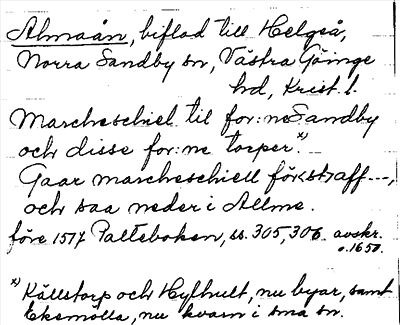 Almaån, biflod till Helgeå,
Norra Sandby sn, Västra Göinge
hd, Krist. l.
Marcheschiel til for:ne Sandby
och disse for:ne torper.x)
Gaar marcheschiell förkstraff ---,
och saa neder i Allme.
före 1577 Palteboken, ss. 305, 306. avskr.
o. 1650.
x) Källstorp och Hylhult, nu byar, samt
Ekemölla, nu kvarn i sma sn.